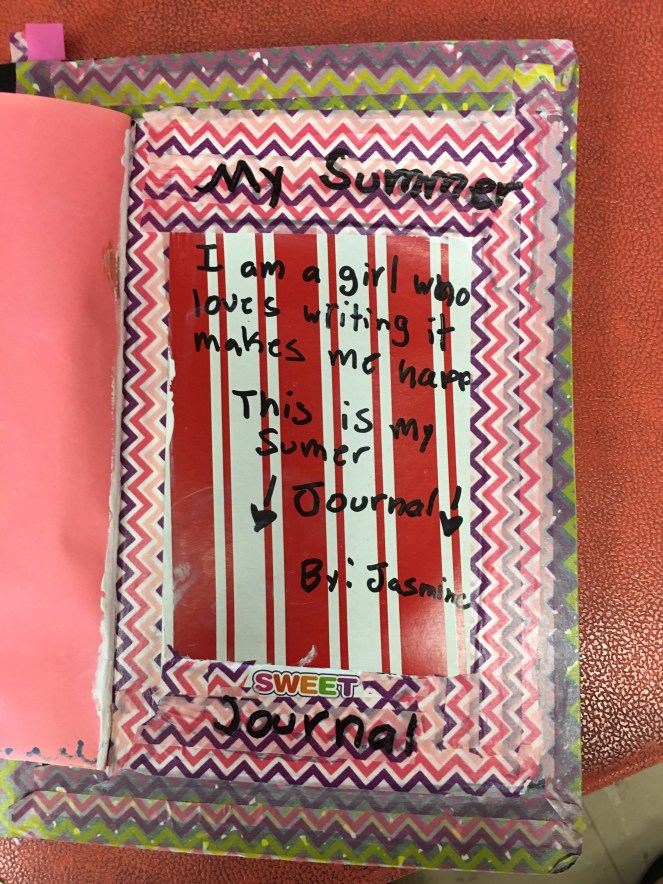 My Summer
I am a girl who
loves writing it
makes me happ
This is my
Sumer
! Journal!
By: Jasmine
SWEET
Journal